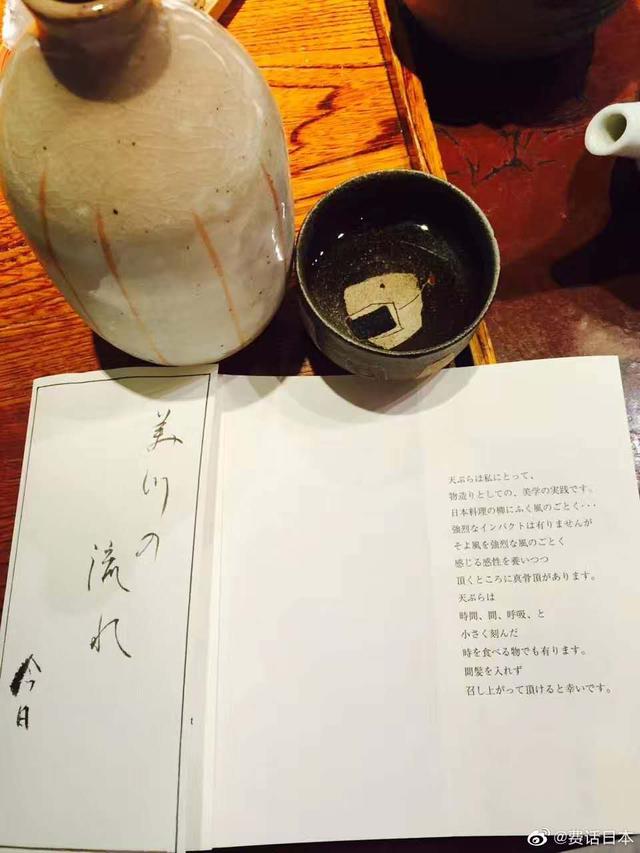 美川の
流れ
今日
天ぷらは私にとって、
物造りとしての、美学の実践です。
日本料理の柳にふく風のごとく･･･
強烈なインパクトは有りませんが
そよ風を強烈な風のごとく
感じる感性を養いつつ
頂くところに真骨頂があります。
天ぷらは
時間、間、呼吸、と
小さく刻んだ
時を食べる物でも有ります。
間髪を入れず
召し上がって頂けると幸いです。
@费话日本